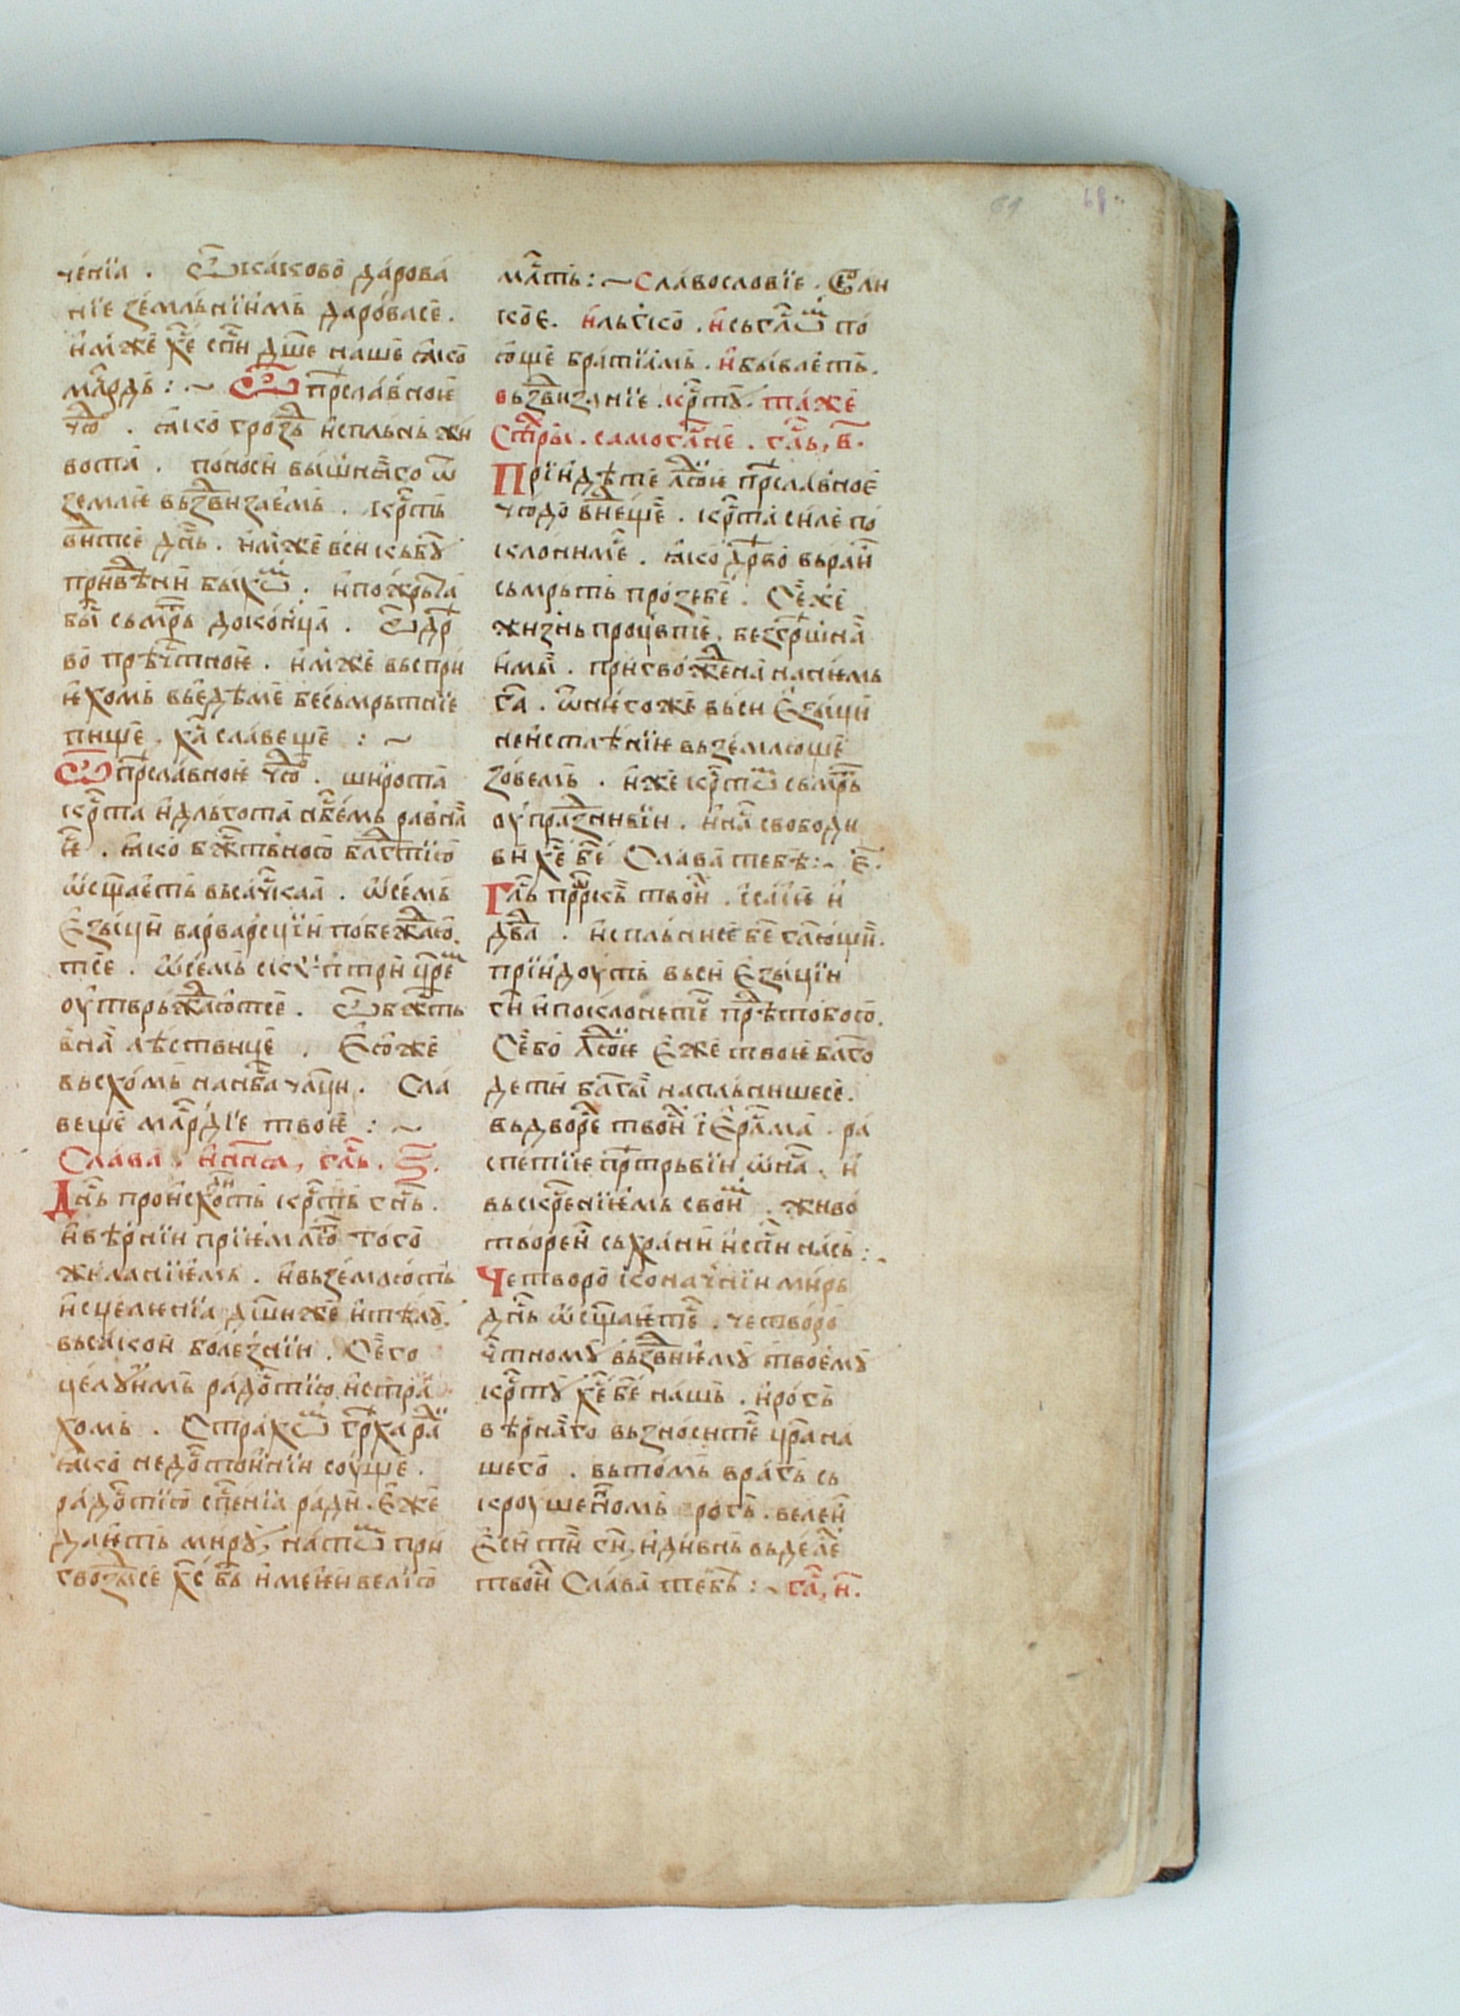 чéнїа . Ѽ каковѡ дарова
нїе земльнїимь даровасе .
имже хе спси дше наше ꙗко
млрдь : ~ Ѽ преславное
чюдо . ꙗко грозⸯ испльнь жи
вота . носеи вышнаго ѿ
землѥ вьздвизаемь . крсть
видитсе днсь . имже вси кь бꙋ
привѣдени быхѡм . и пожрьта
бы сьмрть до конца . Ѽ дрѣ
во прѣчтное . имже вьспри
ѥхомь вь едѣме бесьмрьтнїе
пище . ха славеще : ~
Ѽ преславное чюдо . широта
крста и дльгота нбсемь равна
ѥ . ꙗко бжтвною блгтїю
ѡсщаеть всачскаа . ѡ семь
езыци варварсцїи побеждаю
тсе . ѡ семь скуптри црем
оутврьждаютсе . Ѽ бжть
вна лѣствице . Еюже
вьсходимь на нбса чаци . Сла
веще млрдїе твое : ~
Слава , и нна , глсь . ѕ .
Днсь происходить крсть гнь .
и вѣрнїи прїемлють того
желанїемь . и вьземлють
исцеленїа дши же и тѣлꙋ .
вьсакои болезнїи . Сего
целꙋимь радостїю и стра
хомь . Страхѡм греха ради
ꙗко недостоинїи соуще .
радостїю спсенїа ради . Еже
даѥть мирꙋ , на тѡм при
гвоздисе хс бь имеѥи велїю
млсть : ~ Славословїе . Вели
коѥ . и льгко . и сьгла по
юще братїамь . и бываеть .
вьздвизанїе . крстꙋ . таже
Стхры . самогласне . глсь , в .
Прїидѣте людїе преславное
чюдо видеще . крста силе по
клонимсе . ꙗко дрѣво вь раи
сьмрьть прозебе . Се же
жизнь процвте . безгрѣшна
имы . пригвождена на нѥмь
га . ѿ него же вьси Езыци
неистлѣнїе вьземлюще
зовемь . иже крстѡм сьмрть
оупразднивїи . и на свободи
ви хе бе Слава тебѣ : ~ е .
Глсь прркь твоих . їсаїе и
дда . испльнисе бе глющи .
прїидоуть вьси Езыци
ги и поклонетсе прѣд тобою .
Се бо людїе Еже твоѥ благо
дети блгы напльнишесе .
вь дворе твоих їЕрлма . ра
спетїе претрьвїи ѡ на . и
вьскрсенїемь своим . живо
твореи сьхрани и спси нась : ~
Четвороконачнїи мирь
днсь ѡсщаетсе . четворо
чстномꙋ вьздвиземꙋ твоемꙋ
крстꙋ хе бе нашь . и рогь
вѣрнаго вьзноситсе цра на
шего . вь томь врагь сь
кроушеномь рогь . велеи
Еси ги , и дивнь вь делѣ
твоих Слава тебѣ : ~ гла , и .